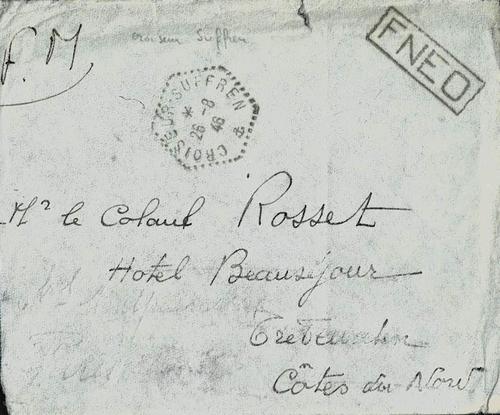 F.M
croiseur Suffren
FNEO
CROISEUR SUFFREN
* 26 -8 46
Mr le Colonel Rosset
Hotel Beauséjour
Côtes du Nord